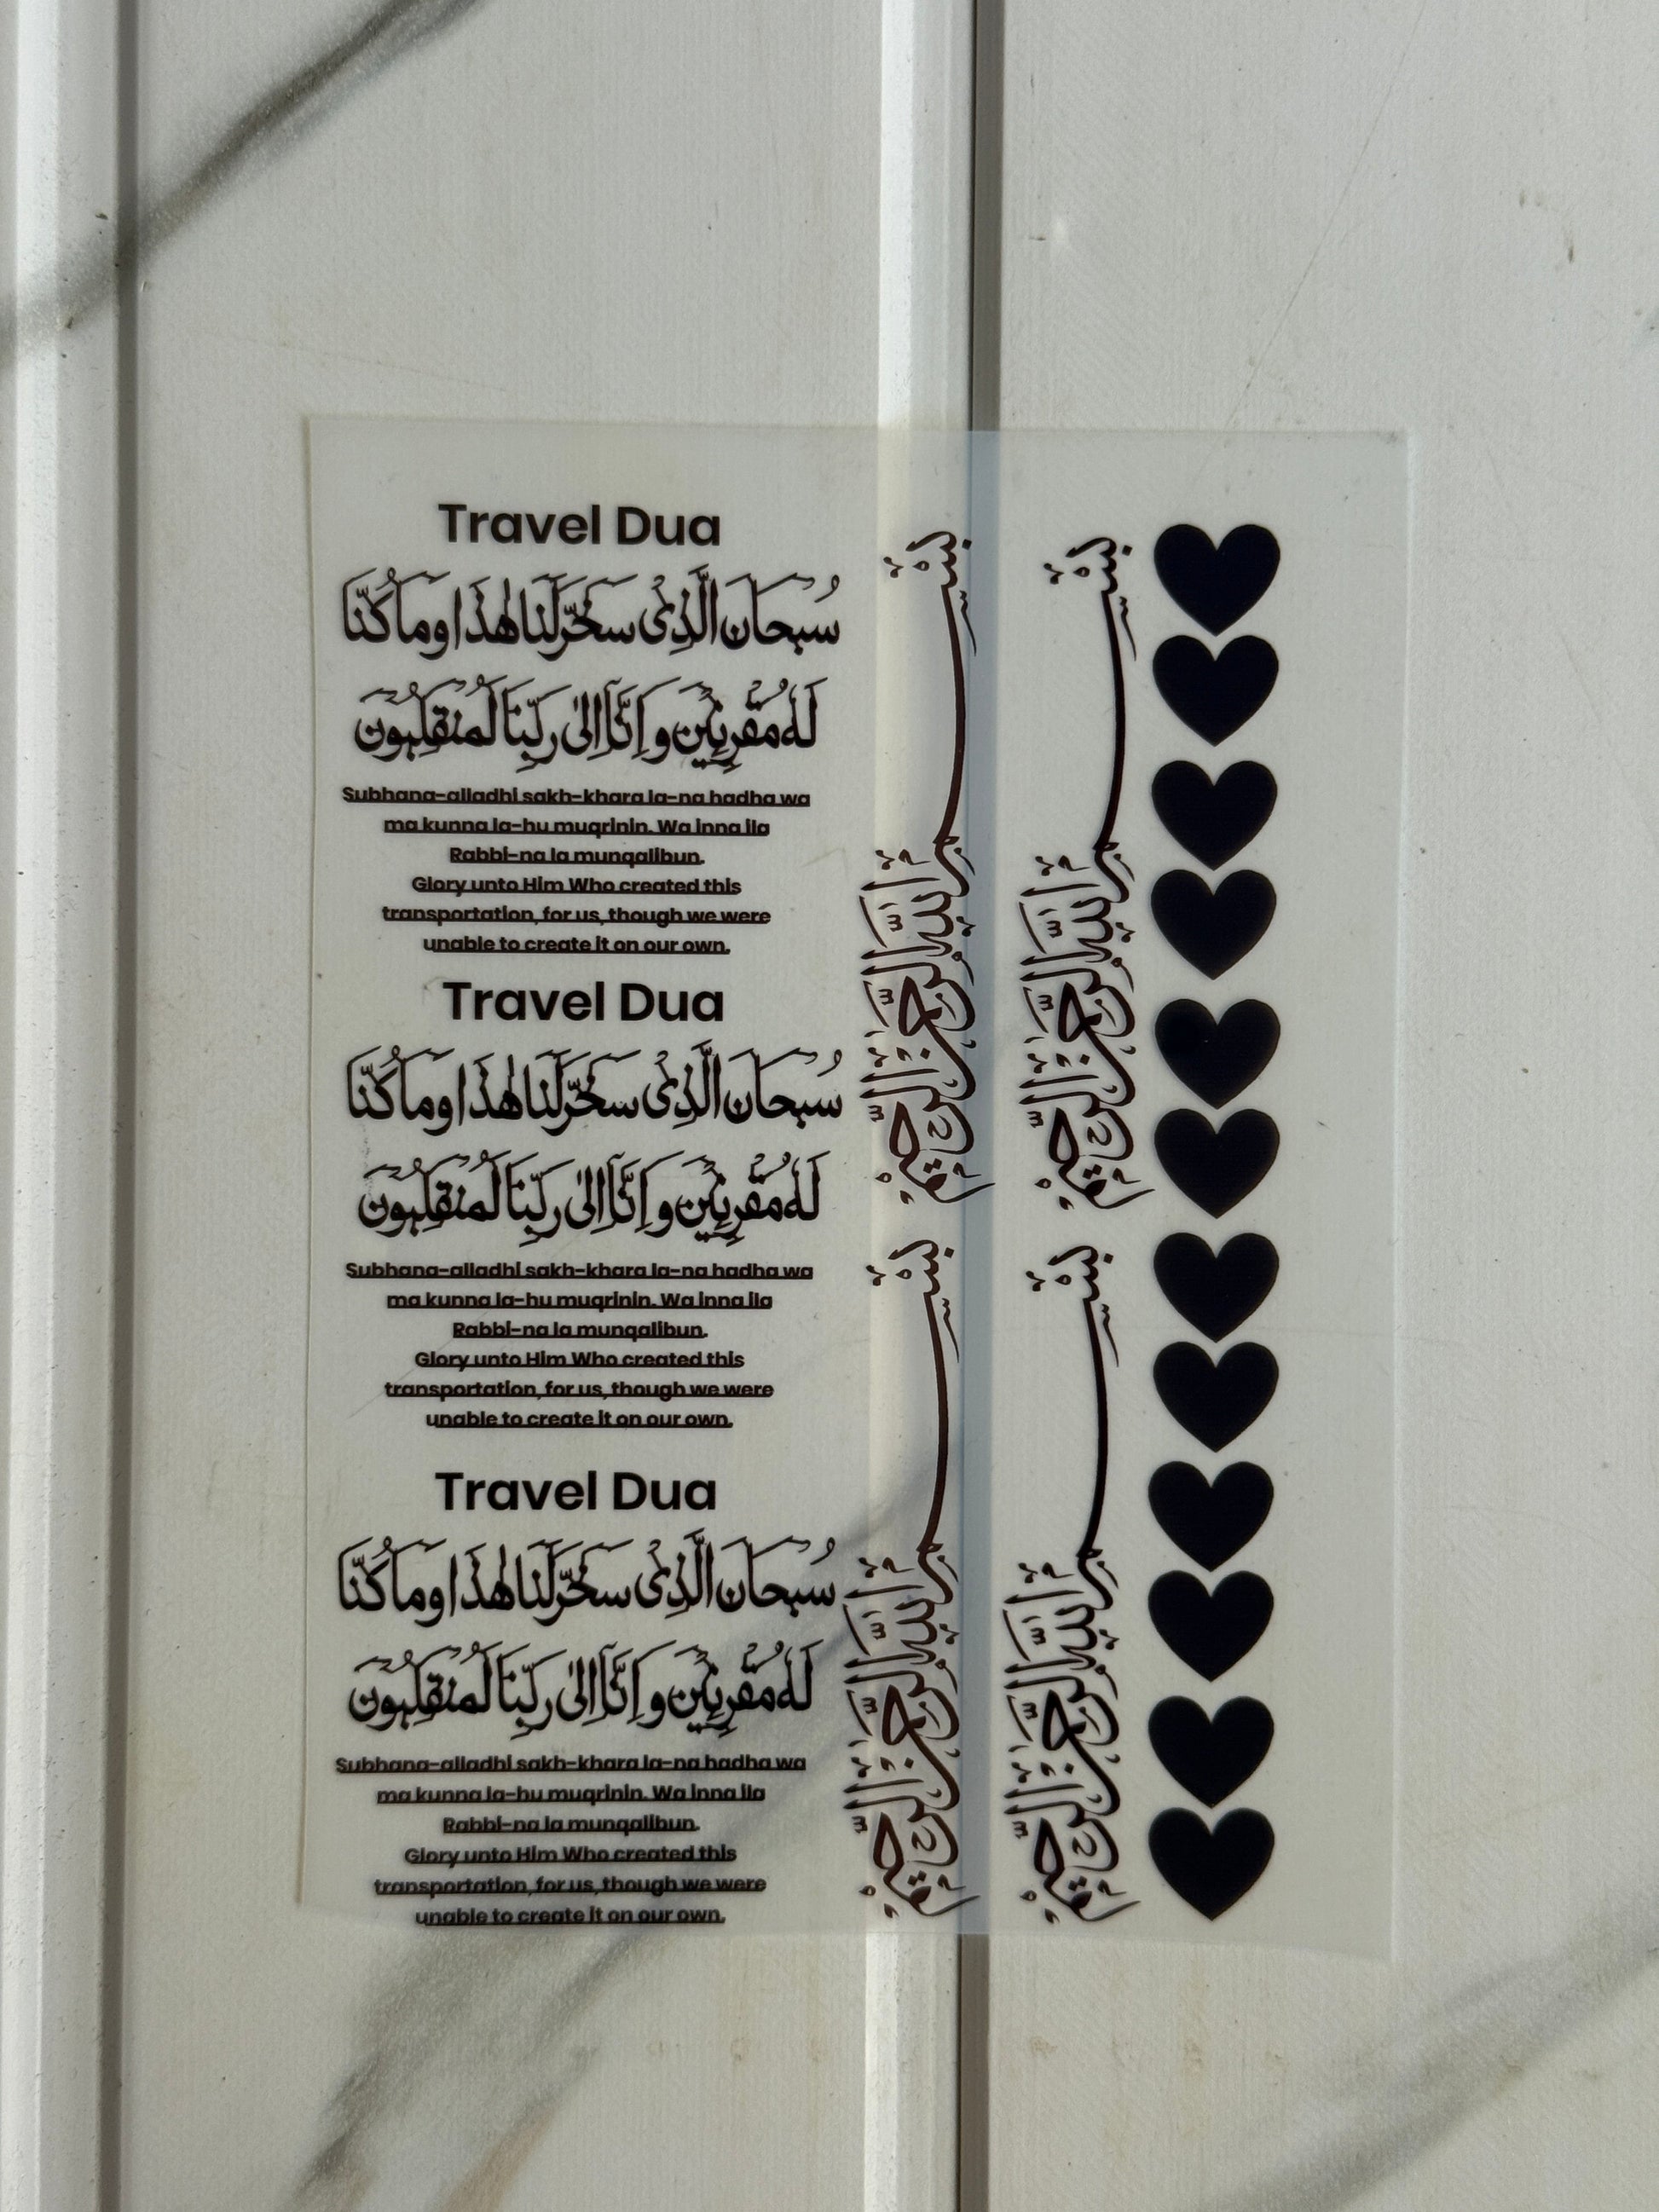 Travel Dua
سُبحَان الَّذِى سَخَّرَ لَنَا هٰذَا وما كُنَّا
لَهُ مُقْرِنِين وَاِنَّا اِلىٰ رَبِّنَا لَمُنقَلِبُون
Subhana-alladhi sakh-khara la-na hadha wa
ma kunna la-hu muqrinin. Wa inna ila
Rabbi-na la munqalibun.
Glory unto Him Who created this
transportation, for us, though we were
unable to create it on our own.
Travel Dua
سُبحَان الَّذِى سَخَّرَ لَنَا هٰذَا وما كُنَّا
لَهُ مُقْرِنِين وَاِنَّا اِلىٰ رَبِّنَا لَمُنقَلِبُون
Subhana-alladhi sakh-khara la-na hadha wa
ma kunna la-hu muqrinin. Wa inna ila
Rabbi-na la munqalibun.
Glory unto Him Who created this
transportation, for us, though we were
unable to create it on our own.
Travel Dua
سُبحَان الَّذِى سَخَّرَ لَنَا هٰذَا وما كُنَّا
لَهُ مُقْرِنِين وَاِنَّا اِلىٰ رَبِّنَا لَمُنقَلِبُون
Subhana-alladhi sakh-khara la-na hadha wa
ma kunna la-hu muqrinin. Wa inna ila
Rabbi-na la munqalibun.
Glory unto Him Who created this
transportation, for us, though we were
unable to create it on our own.
بِسْمِ اللهِ الرَّحْمٰنِ الرَّحِيْمِ
بِسْمِ اللهِ الرَّحْمٰنِ الرَّحِيْمِ
بِسْمِ اللهِ الرَّحْمٰنِ الرَّحِيْمِ
بِسْمِ اللهِ الرَّحْمٰنِ الرَّحِيْمِ